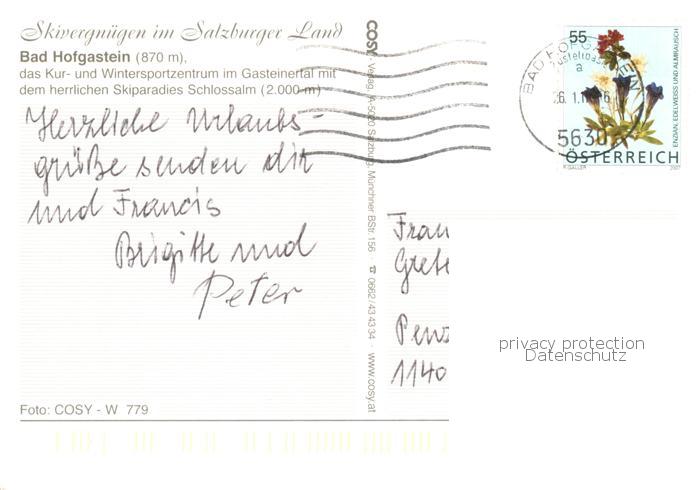 Skivergnügen im Salzburger Land
Bad Hofgastein (870 m),
das Kur- und Wintersportzentrum im Gasteinertal mit
dem herrlichen Skiparadies Schlossalm (2.000 m)
Herzliche Urlaubs-
grüße senden dir
und Francis
Brigitte und
Peter
Foto: COSY - W 779
COSY - Verlag, A-5020 Salzburg, Münchner BStr. 156 · ☎ 0662/43 43 34 · www.cosy.at
BAD HOFGASTEIN
a
26.1.1
5630
55
ENZIAN, EDELWEISS UND ALMRAUSCH
ÖSTERREICH
R.GALLER 2007
Frau
Grete
Penz
1140
privacy protection
Datenschutz